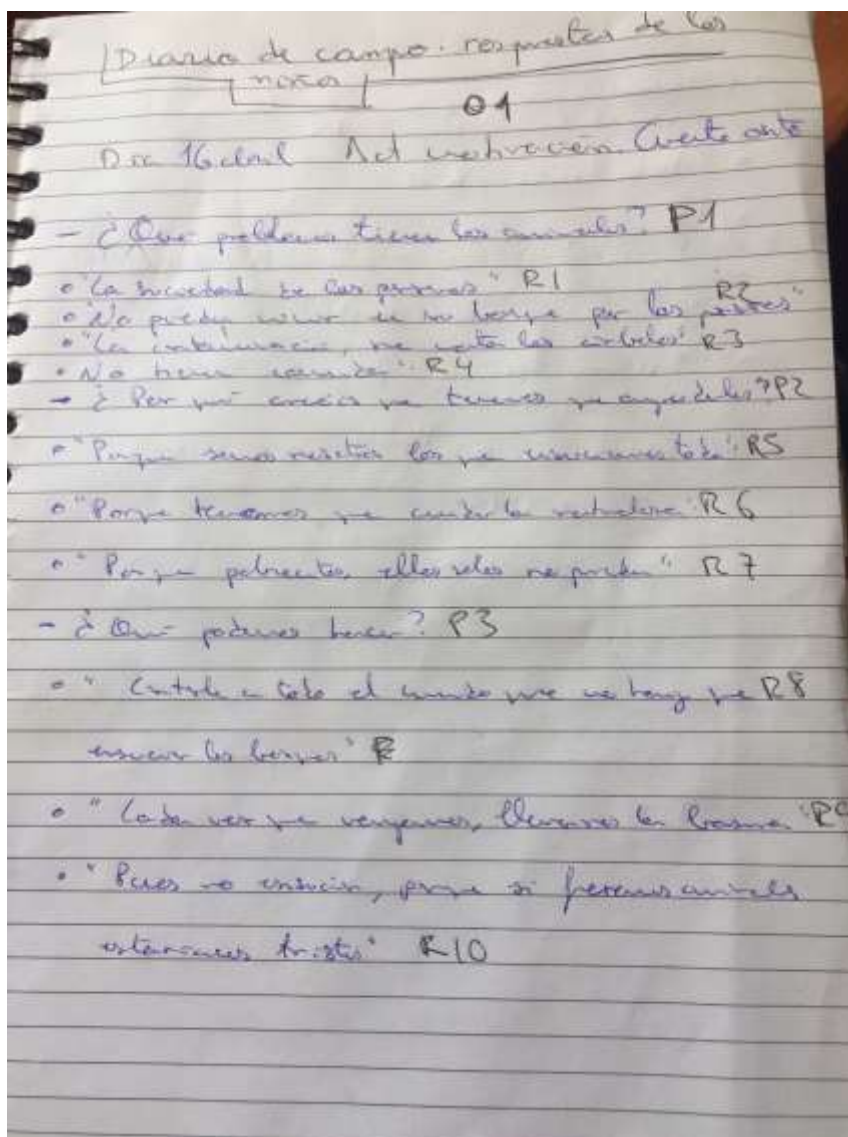 Diario de campo. respuestas de los
niños
01
Día 16 abril Act motivación Cuento
- ¿Qué problemas tienen los animales? P1
• "La suciedad de las personas" R1
• "No pueden vivir en su bosque por las" R2
• "La contaminación, se los árboles" R3
• No tienen comida". R4
- ¿Por qué creéis que tenemos que ayudarles? P2
• "Porque somos nosotros los que ensuciamos todo". R5
• "Porque tenemos que cuidar la naturaleza" R6
• "Porque pobrecitos, ellos solos no pueden" R7
- ¿Qué podemos hacer? P3
• "Contarle a todo el mundo que no hay que R8
ensuciar los bosques"
• "Cada vez que vengamos, llevarnos la basura" R9
• "Pues no ensuciar, porque si fuéramos animales
estaríamos tristes" R10